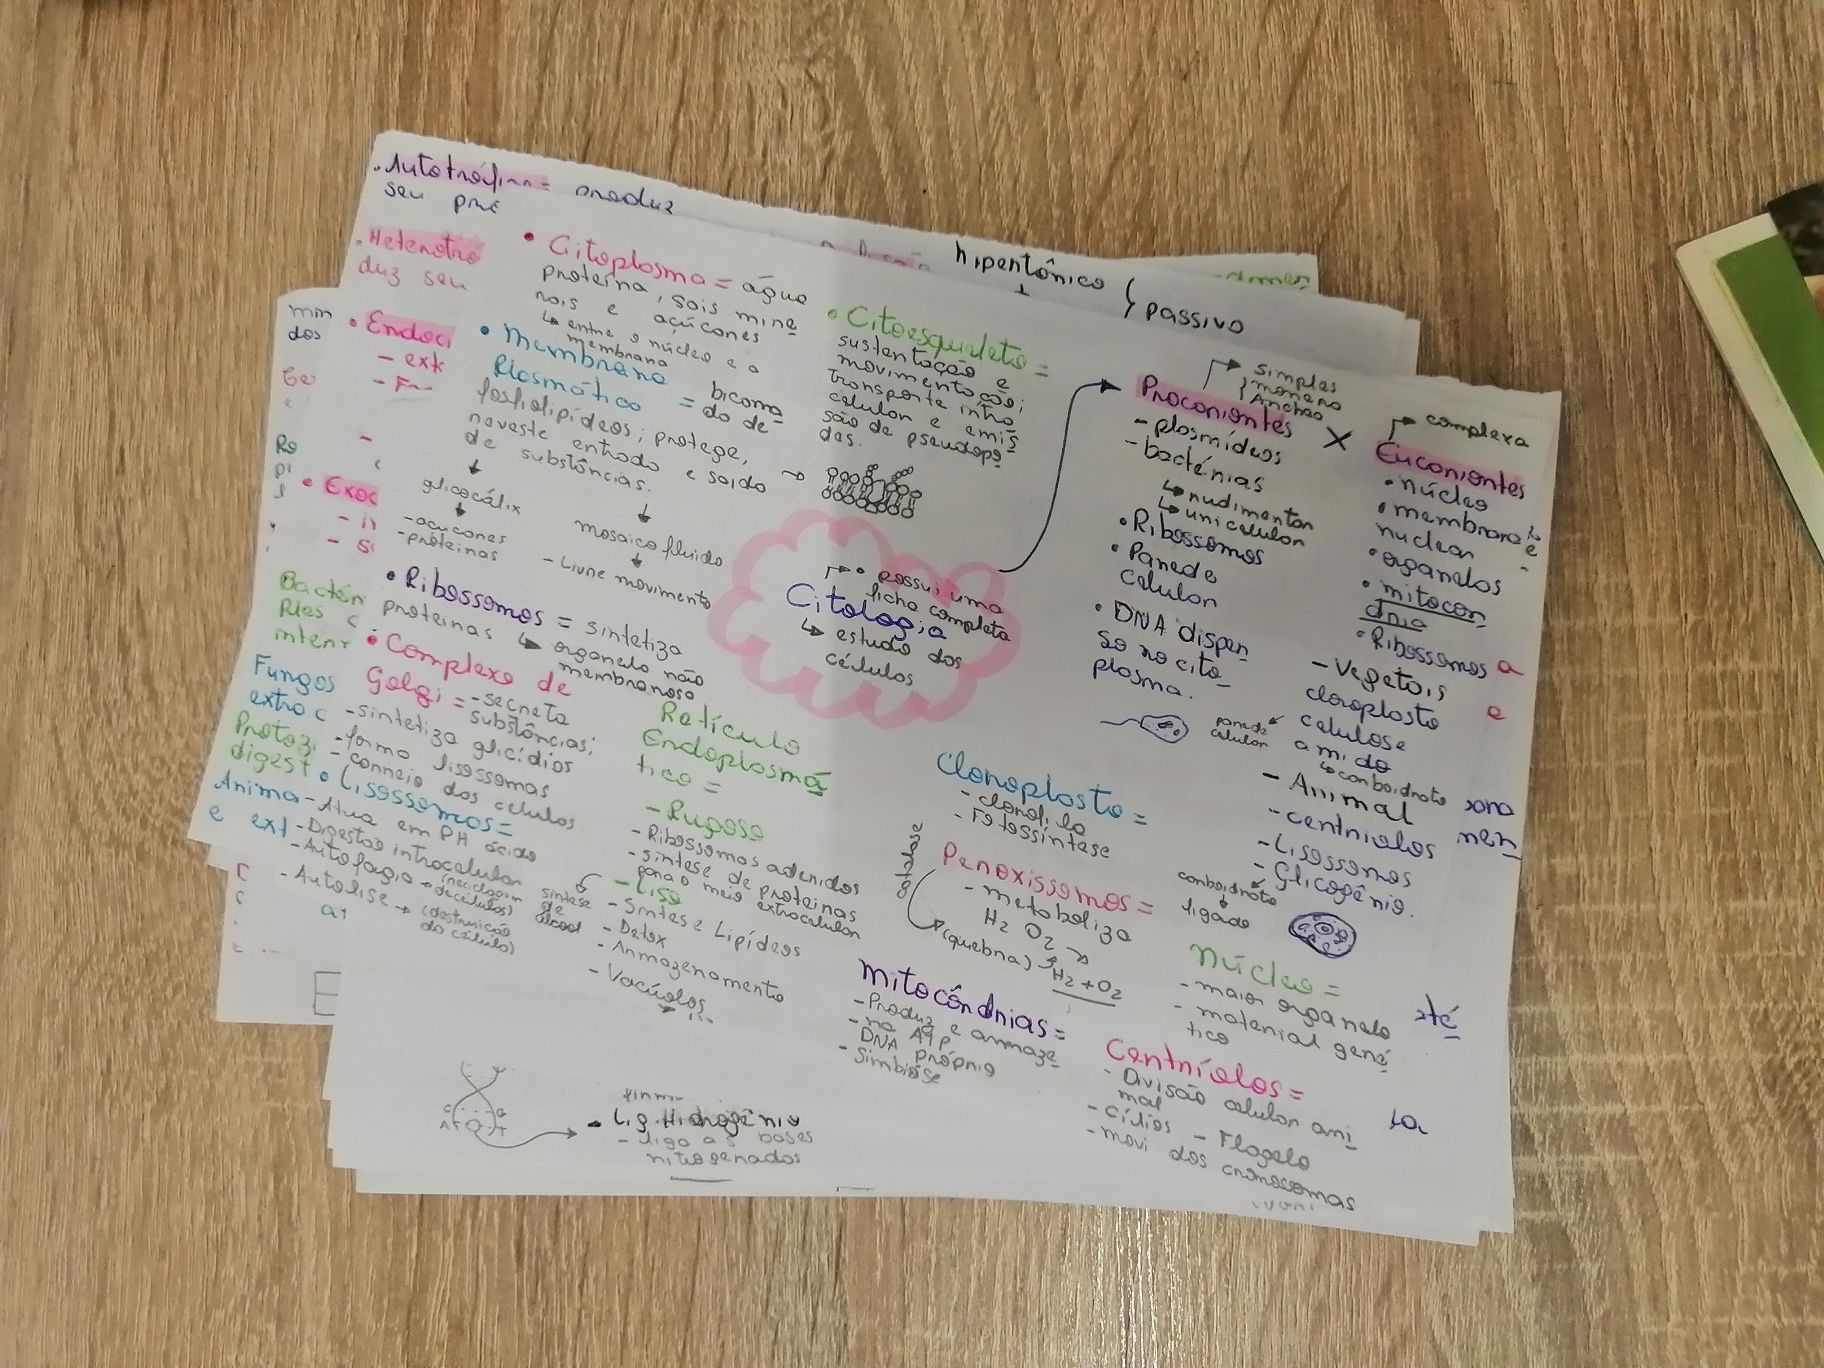 • Autotrófico = produz
seu pró
• Heterotró
duz seu
• Endoci
- ext
• Exoc
hipertônico
passivo
min
dos
• Citoplasma = água
proteína, sais mine
rais e açúcares
↳ entre o núcleo e a
membrana
• Membrana
Plasmática = bicama
da de
fosfolipídeos; protege,
reveste entrada e saída
de substâncias.
glicocálix
- açúcares
- proteínas
mosaico fluido
- Livre movimento
• Citoesqueleto =
sustentação e
movimentação;
transporte intra
celular e emis
são de pseudopo
des.
• Ribossomos = sintetiza
proteínas ↳ organela não
membranosa
• Complexo de
Golgi = - secreta
substâncias;
- sintetiza glicídios
- forma lisossomas
- correio das células
• Lisossomos =
- Atua em PH ácido
- Digestão intracelular
- Autofagia → (reciclagem
de células)
- Autólise → (destruição
da célula)
Bactér
Fungos
extra c
Protozo
digest
Anima
e ext
Retículo
Endoplasmá
tico =
- Rugoso
- Ribossomos aderidos
- síntese de proteínas
para o meio extracelular
- Liso
síntese
de
álcool
- Síntese Lipídeos
- Detox
- Armazenamento
- Vacúolos
• possui uma
ficha completa
Citologia
↳ estudo das
células
simples
monera
Procariontes
- plasmídeos
- bactérias
↳ rudimentar
↳ unicelular
• Ribossomos
• Parede
celular
• DNA disper
so no cito
plasma.
parede
celular
X
complexa
Eucariontes
• núcleo
• membrana
nuclear
• organelas
• mitocon
dria
• Ribossomos
- Vegetais
cloroplasto
celulose
amido
↳ carboidrato
- Animal
- centríolos
- Lisossomos
- Glicogênio.
carboidrato
ligado
Cloroplasto =
- clorofila
- Fotossíntese
Peroxissomos =
- metaboliza
H2 O2
catalase
(quebra) H2 + O2
Mitocôndrias =
- Produz e armaze
na ATP
- DNA próprio
- Simbiose
Núcleo =
- maior organela
- material gené
tico
Centríolos =
- Divisão celular ani
mal
- Cílios - Flagelo
- movi dos cromossomas
até
- Lig. Hidrogênio
- liga as bases
nitrogenadas